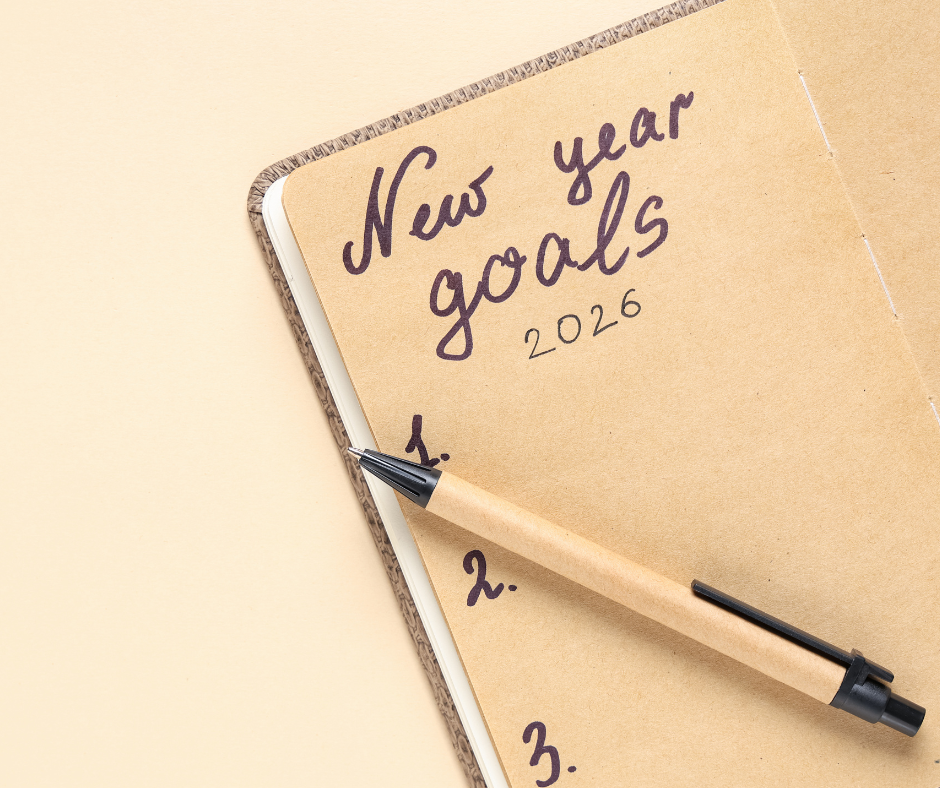 New year
goals
2026
1.
2.
3.